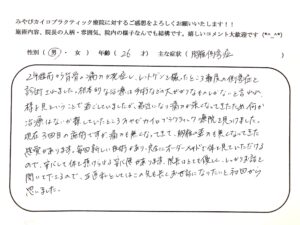 みやびカイロプラクティック療院に対するご感想をよろしくお願いいたします！！
施術内容、院長の人柄・雰囲気、院内の様子なんでも結構です。嬉しいコメント大歓迎です (*^_^*)
性別（ 男 ・ 女 ） 年齢（ 26 才） 主な症状（ 側彎症 ）
2年程前から背骨の痛みが発症し、レントゲンを撮ったところ軽度の側彎症と
診断されました。根本的な治療は手術などの大がかりなものしかないと言われ、
様子見ということで過ごしていましたが、最近になって痛みが強くなってきたため、何か
治療はないか探していたところみやびカイロプラクティック療院を見つけました。
現在3回目の施術ですが、痛みも無くなってきて、
感覚があります。毎回新しい施術があり、完全にオーダーメイドで体を見ていただけるの
で、安心して体を預けられる安心感があります。院長はとても優しく、しっかり話を
聞いて下さるので、
思いました。